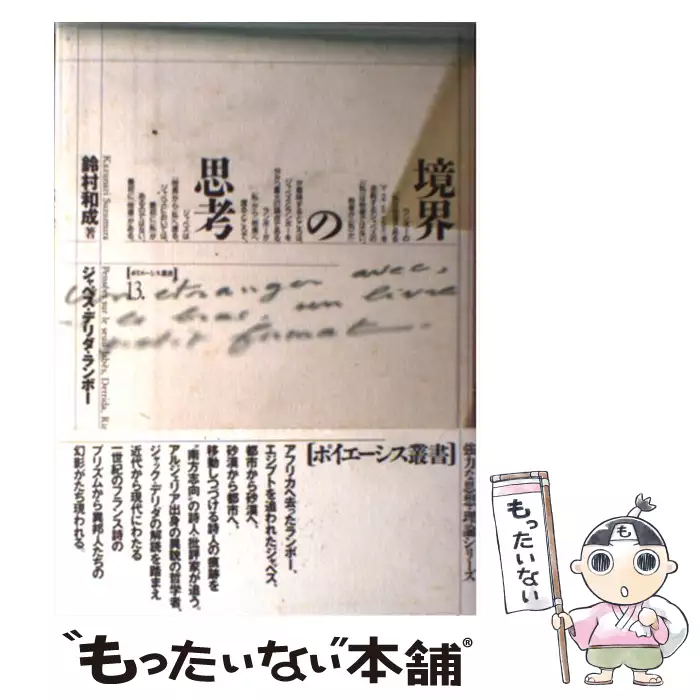 境界
の
思考
鈴村和成 著
Kazunari Suzumura
ジャベス・デリダ・ランボー
Pensées sur le seuil Jabès, Derrida, Ri
[ポイエーシス叢書]
13.
Un étranger avec,
le bras, un livre
petit format.
[ポイエーシス叢書]
強力な思想・理論シリーズ
アフリカへ去ったランボー、
エジプトを追われたジャベス、
都市から砂漠へ、
砂漠から都市へ、
移動しつづける詩人の痕跡を
"南方志向"の詩人・批評家が追う。
アルジェリア出身の異貌の哲学者、
ジャック・デリダの解読を踏まえ
近代から現代にわたる
一世紀のフランス詩の
プリズムから異邦人たちの
幻影がたち現われる。
もったいない
"もったいない本舗®